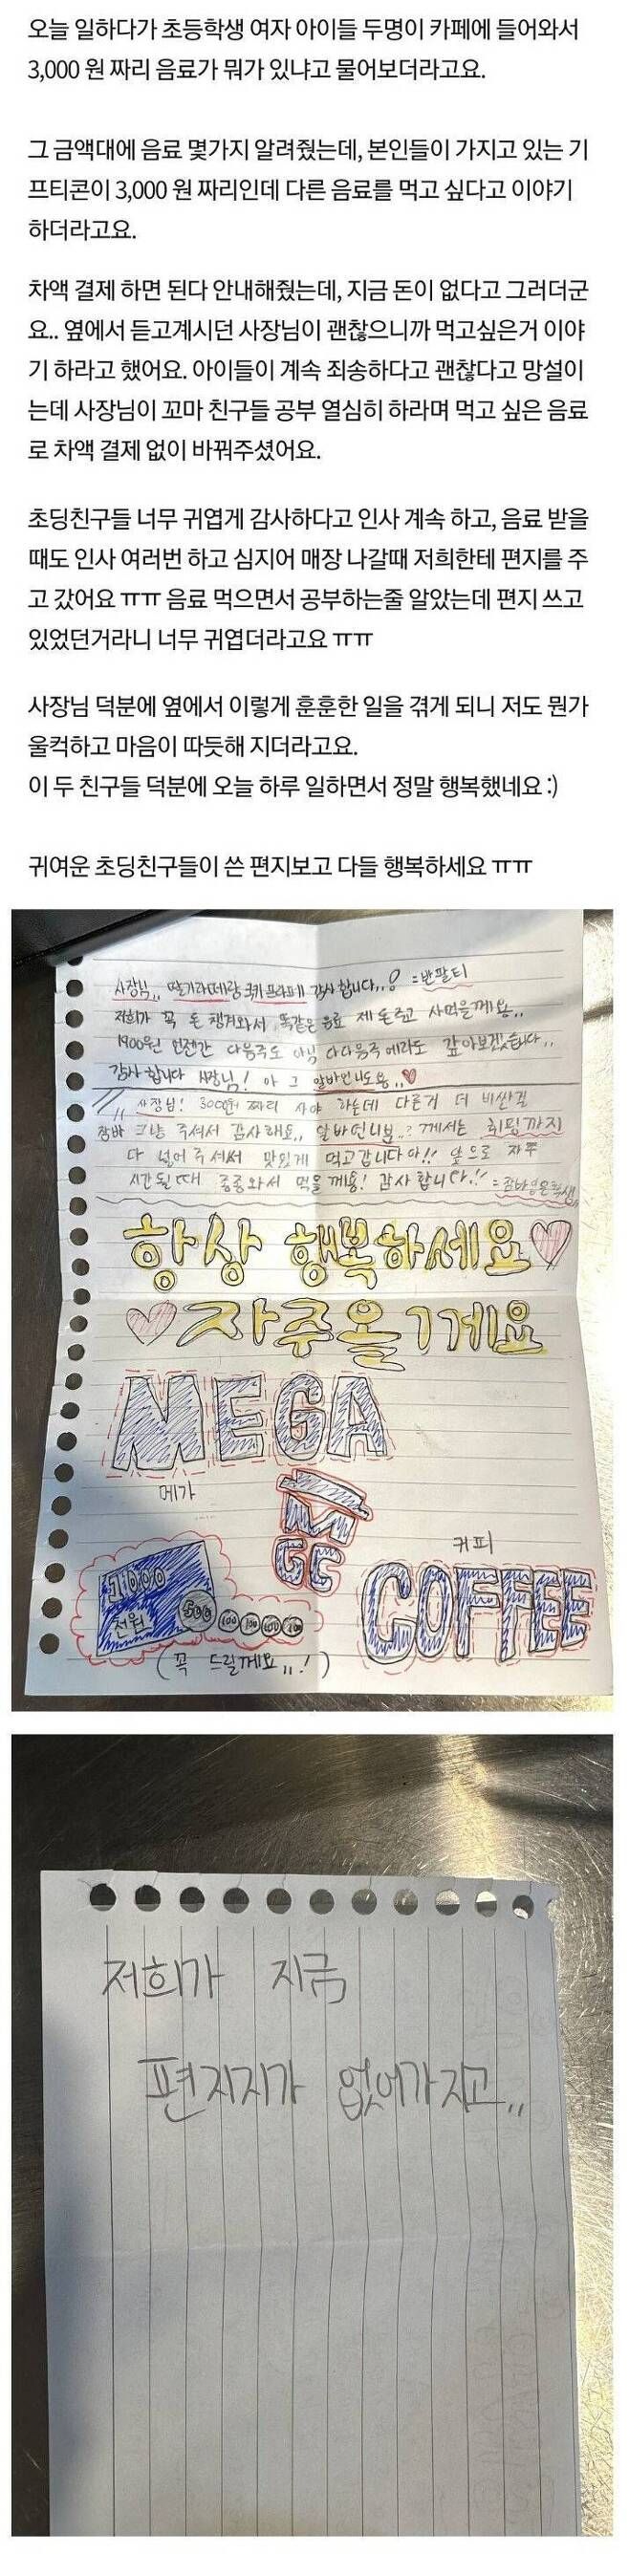 오늘 일하다가 초등학생 여자 아이들 두명이 카페에 들어와서
3,000 원 짜리 음료가 뭐가 있냐고 물어보더라고요.
그 금액대에 음료 몇가지 알려줬는데, 본인들이 가지고 있는 기
프티콘이 3,000 원 짜리인데 다른 음료를 먹고 싶다고 이야기
하더라고요.
차액 결제 하면 된다 안내해줬는데, 지금 돈이 없다고 그러더군
요.. 옆에서 듣고계시던 사장님이 괜찮으니까 먹고싶은거 이야
기 하라고 했어요. 아이들이 계속 죄송하다고 괜찮다고 망설이
는데 사장님이 꼬마 친구들 공부 열심히 하라며 먹고 싶은 음료
로 차액 결제 없이 바꿔주셨어요.
초딩친구들 너무 귀엽게 감사하다고 인사 계속 하고, 음료 받을
때도 인사 여러번 하고 심지어 매장 나갈때 저희한테 편지를 주
고 갔어요 ㅠㅠ 음료 먹으면서 공부하는줄 알았는데 편지 쓰고
있었던거라니 너무 귀엽더라고요 ㅠㅠ
사장님 덕분에 옆에서 이렇게 훈훈한 일을 겪게 되니 저도 뭔가
울컥하고 마음이 따듯해 지더라고요.
이 두 친구들 덕분에 오늘 하루 일하면서 정말 행복했네요 :)
귀여운 초딩친구들이 쓴 편지보고 다들 행복하세요 ㅠㅠ
사장님,, 딸기라떼랑 쿠키프라페 감사합니다..! =반팔티
저희가 꼭 돈 챙겨와서 똑같은 음료 제 돈주고 사먹을께요..
1900원 언젠간 다음주도 아님 다다음주 에라도 갚아보겠습니다..
감사합니다 사장님! 아 그 알바언니도용..♡
사장님! 3000원 짜리 사야 하는데 다른거 더 비싼걸
그냥 주셔서 감사해요.. 알바언니분..? 께서는 휘핑까지
다 넣어주셔서 맛있게 먹고갑니다아!! 앞으로 자주
시간될때 종종와서 먹을께용! 감사합니다!!
항상 행복하세요♡
♡자주올게요
MEGA
메가
MGC
커피
COFFEE
1000
천원
500
100
100
(꼭 드릴께요,,!)
저희가 지금
편지지가 없어가지고..